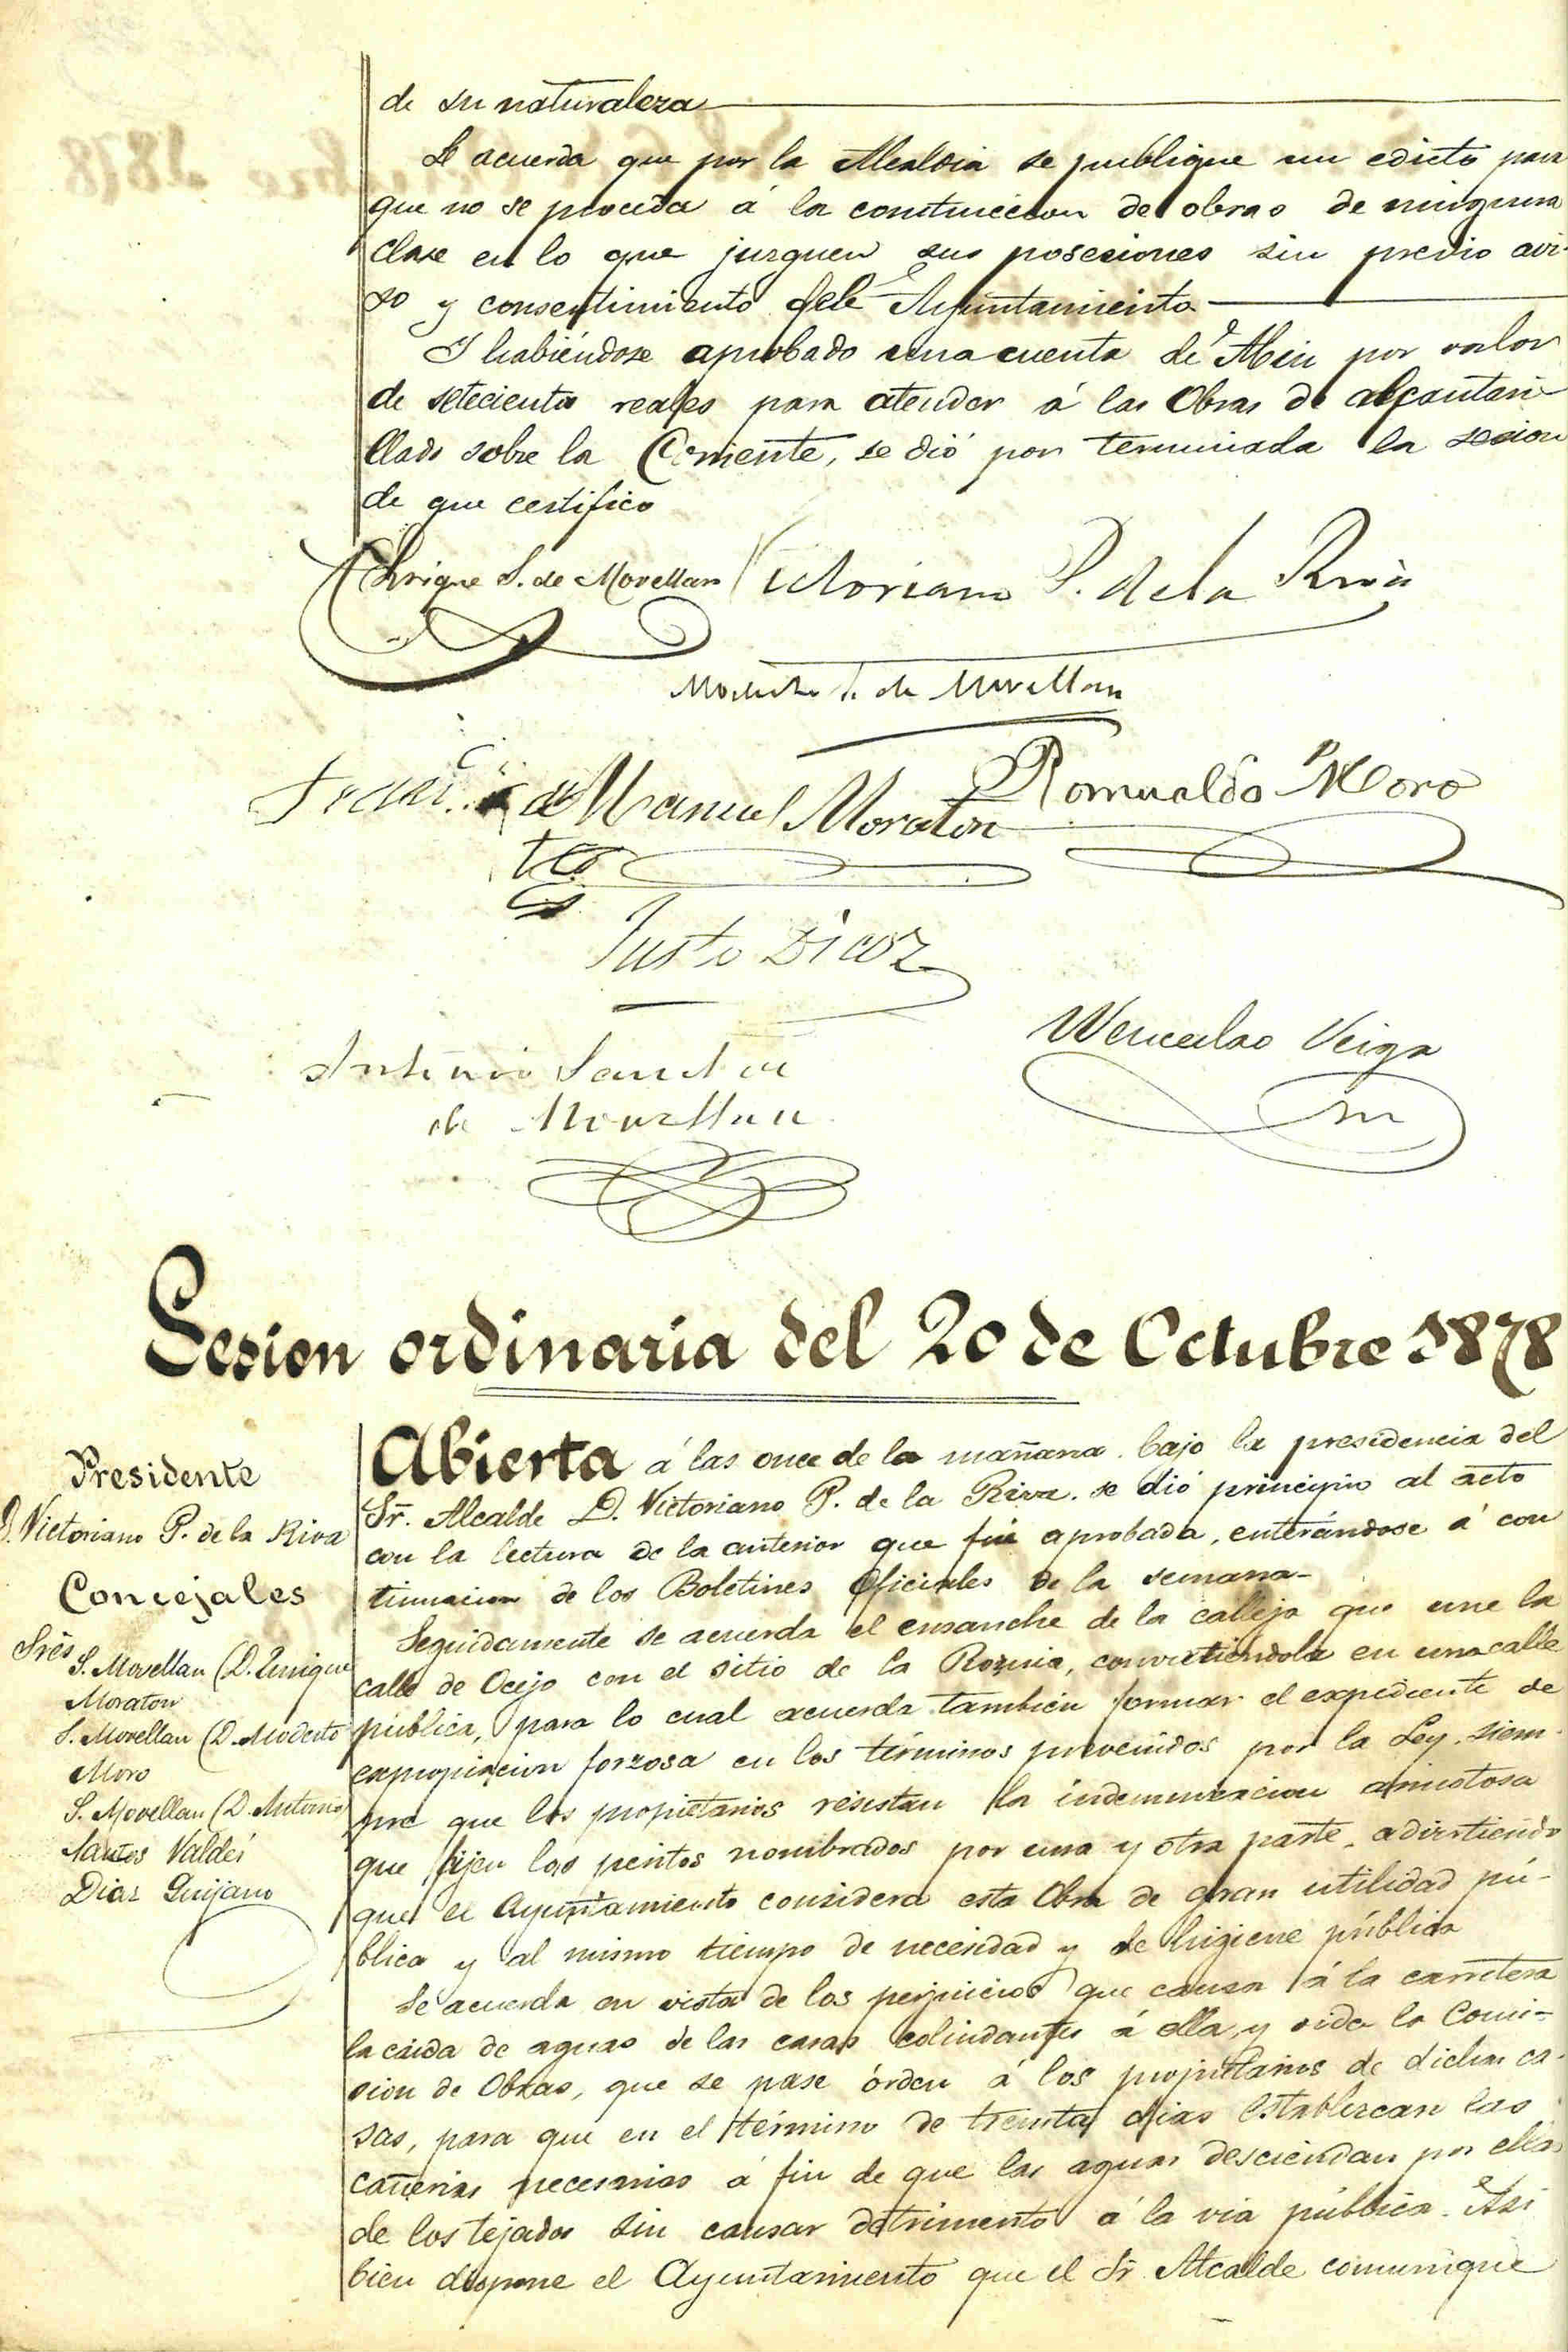 de su naturaleza
Se acuerda que por la Alcaldia se publique un edicto para
que no se proceda á la construccion de obras de ninguna
clase en lo que juzguen sus posesiones sin previo avi-
so y consentimiento del Ayuntamiento
Y habiéndose aprobado una cuenta de por valor
de setecientos reales para atender á las Obras de alcantari
llado sobre la Corriente, se dió por terminada la sesion
de que certifico
Enrique S. de Movellan Victoriano P. de la Riva
Modesto S. de Movellan
Manuel Moraton Romualdo Moro
Justo Diaz
Antonio Sanchez
de Movellan
Wenceslao Veiga
Sesion ordinaria del 20 de Octubre 1878
Presidente
D. Victoriano P. de la Riva
Concejales
Sres
S. Movellan (D. Enrique
Moraton
S. Movellan (D. Modesto
Moro
S. Movellan (D. Antonio)
Santos Valdés
Diaz Quijano
Abierta á las once de la mañana. bajo la presidencia del
Sr. Alcalde D. Victoriano P. de la Riva. se dió principio al acto
con la lectura de la anterior que fué aprobada, enterándose á con
tinuacion de los Boletines Oficiales de la semana-
Seguidamente se acuerda el ensanche de la calleja que une la
calle de Ocejo con el sitio de la Roznia, convirtiéndola en una calle
pública, para lo cual acuerda tambien formar el expediente de
expropiacion forzosa en los términos prevenidos por la Ley, siem-
pre que los propietarios resistan la indemnizacion amistosa
que fijen los peritos nombrados por una y otra parte, advirtiendo
que el Ayuntamiento considera esta Obra de gran utilidad pú-
blica y al mismo tiempo de necesidad y de higiene pública
Se acuerda en vista de los perjuicios que causa á la carretera
la caida de aguas de las casas colindantes á ella, y oida la Comi-
sion de Obras, que se pase órden á los propietarios de dichas ca-
sas, para que en el término de treinta dias establezcan las
cañerias necesarias á fin de que las aguas desciendan por ellas
de los tejados sin causar detrimento á la via pública. Asi
bien dispone el Ayuntamiento que el Sr Alcalde comunique